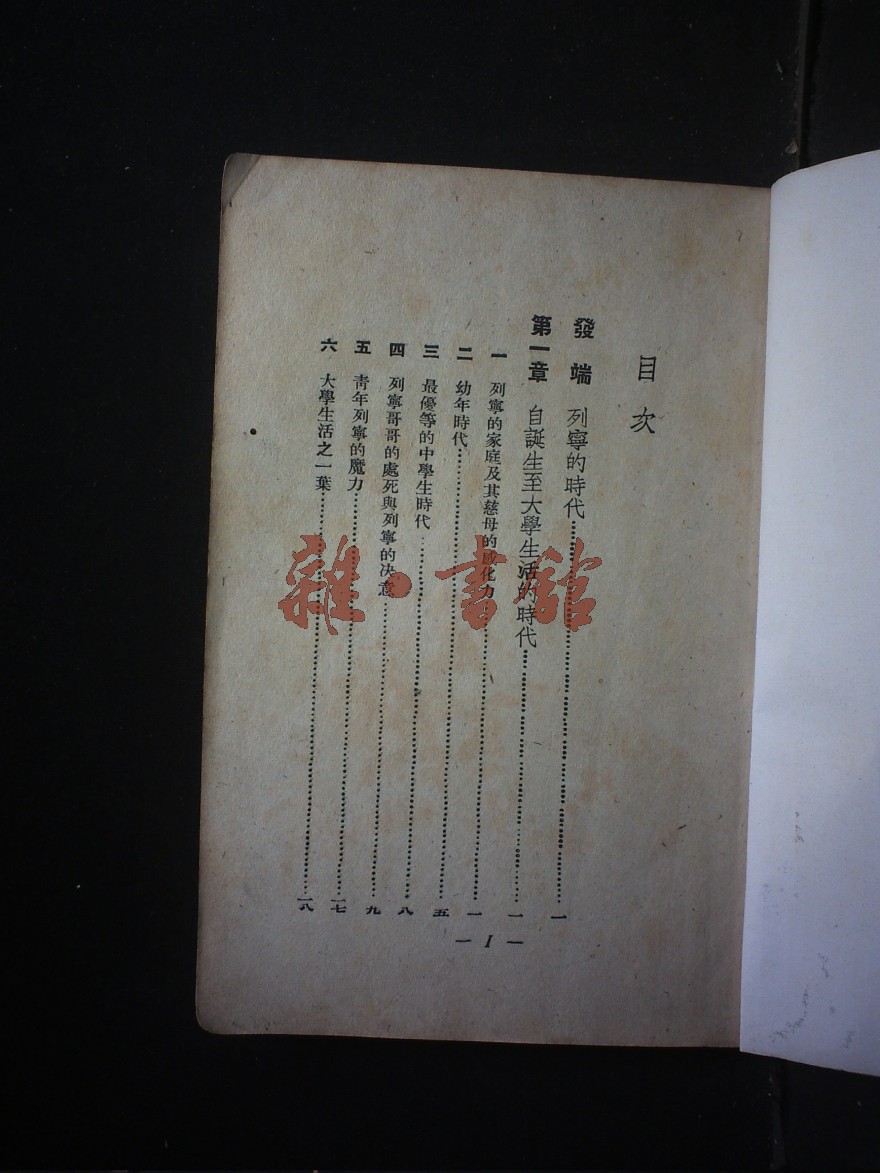 目次
發端 列寧的時代……一
第一章 自誕生至大學生活的時代……一
一 列寧的家庭及其慈母的感化力……一
二 幼年時代……五
三 最優等的中學生時代……八
四 列寧哥哥的處死與列寧的決意……九
五 青年列寧的魔力……一七
六 大學生活之一葉……一八
— I —
雜·書館